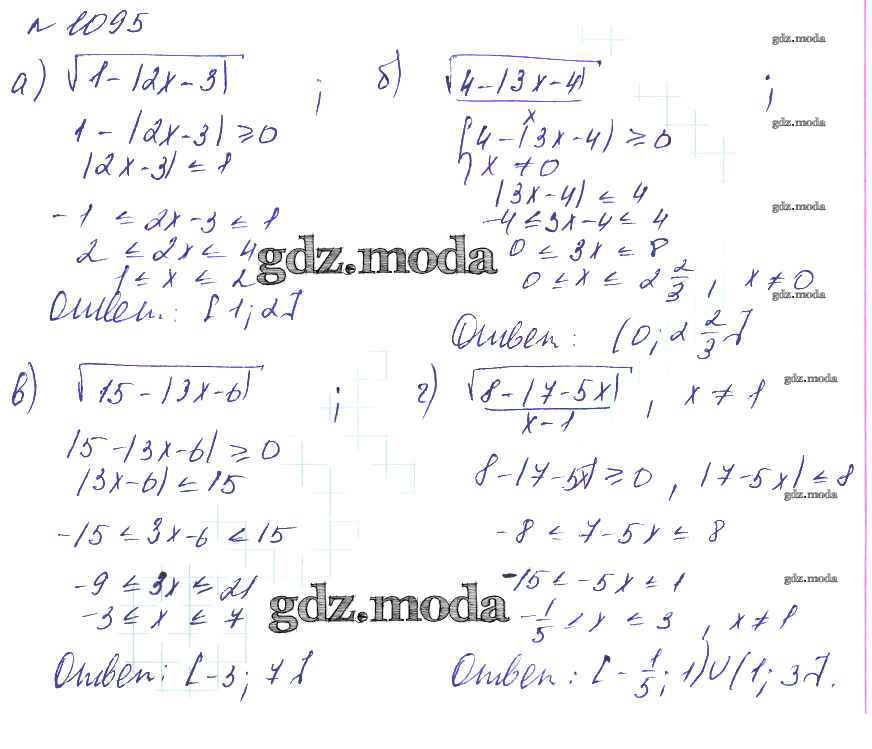 № 1095
а) √1-|2x-3| ;
1-|2x-3| ≥ 0
|2x-3| ≤ 1
-1 ≤ 2x-3 ≤ 1
2 ≤ 2x ≤ 4
1 ≤ x ≤ 2
Ответ: [1; 2]
б) √4-|3x-4| / x ;
{4-|3x-4| ≥ 0
x ≠ 0
|3x-4| ≤ 4
-4 ≤ 3x-4 ≤ 4
0 ≤ 3x ≤ 8
0 ≤ x ≤ 2 2/3 , x ≠ 0
Ответ: (0; 2 2/3]
в) √15-|3x-6| ;
15-|3x-6| ≥ 0
|3x-6| ≤ 15
-15 ≤ 3x-6 ≤ 15
-9 ≤ 3x ≤ 21
-3 ≤ x ≤ 7
Ответ: [-3; 7]
г) √8-|7-5x| / x-1 , x ≠ 1
8-|7-5x| ≥ 0 , |7-5x| ≤ 8
-8 ≤ 7-5x ≤ 8
-15 ≤ -5x ≤ 1
-1/5 ≤ x ≤ 3 , x ≠ 1
Ответ: [-1/5; 1)∪(1; 3].
gdz.moda
gdz.moda
gdz.moda
gdz.moda
gdz.moda
gdz.moda
gdz.moda
gdz.moda
gdz.moda